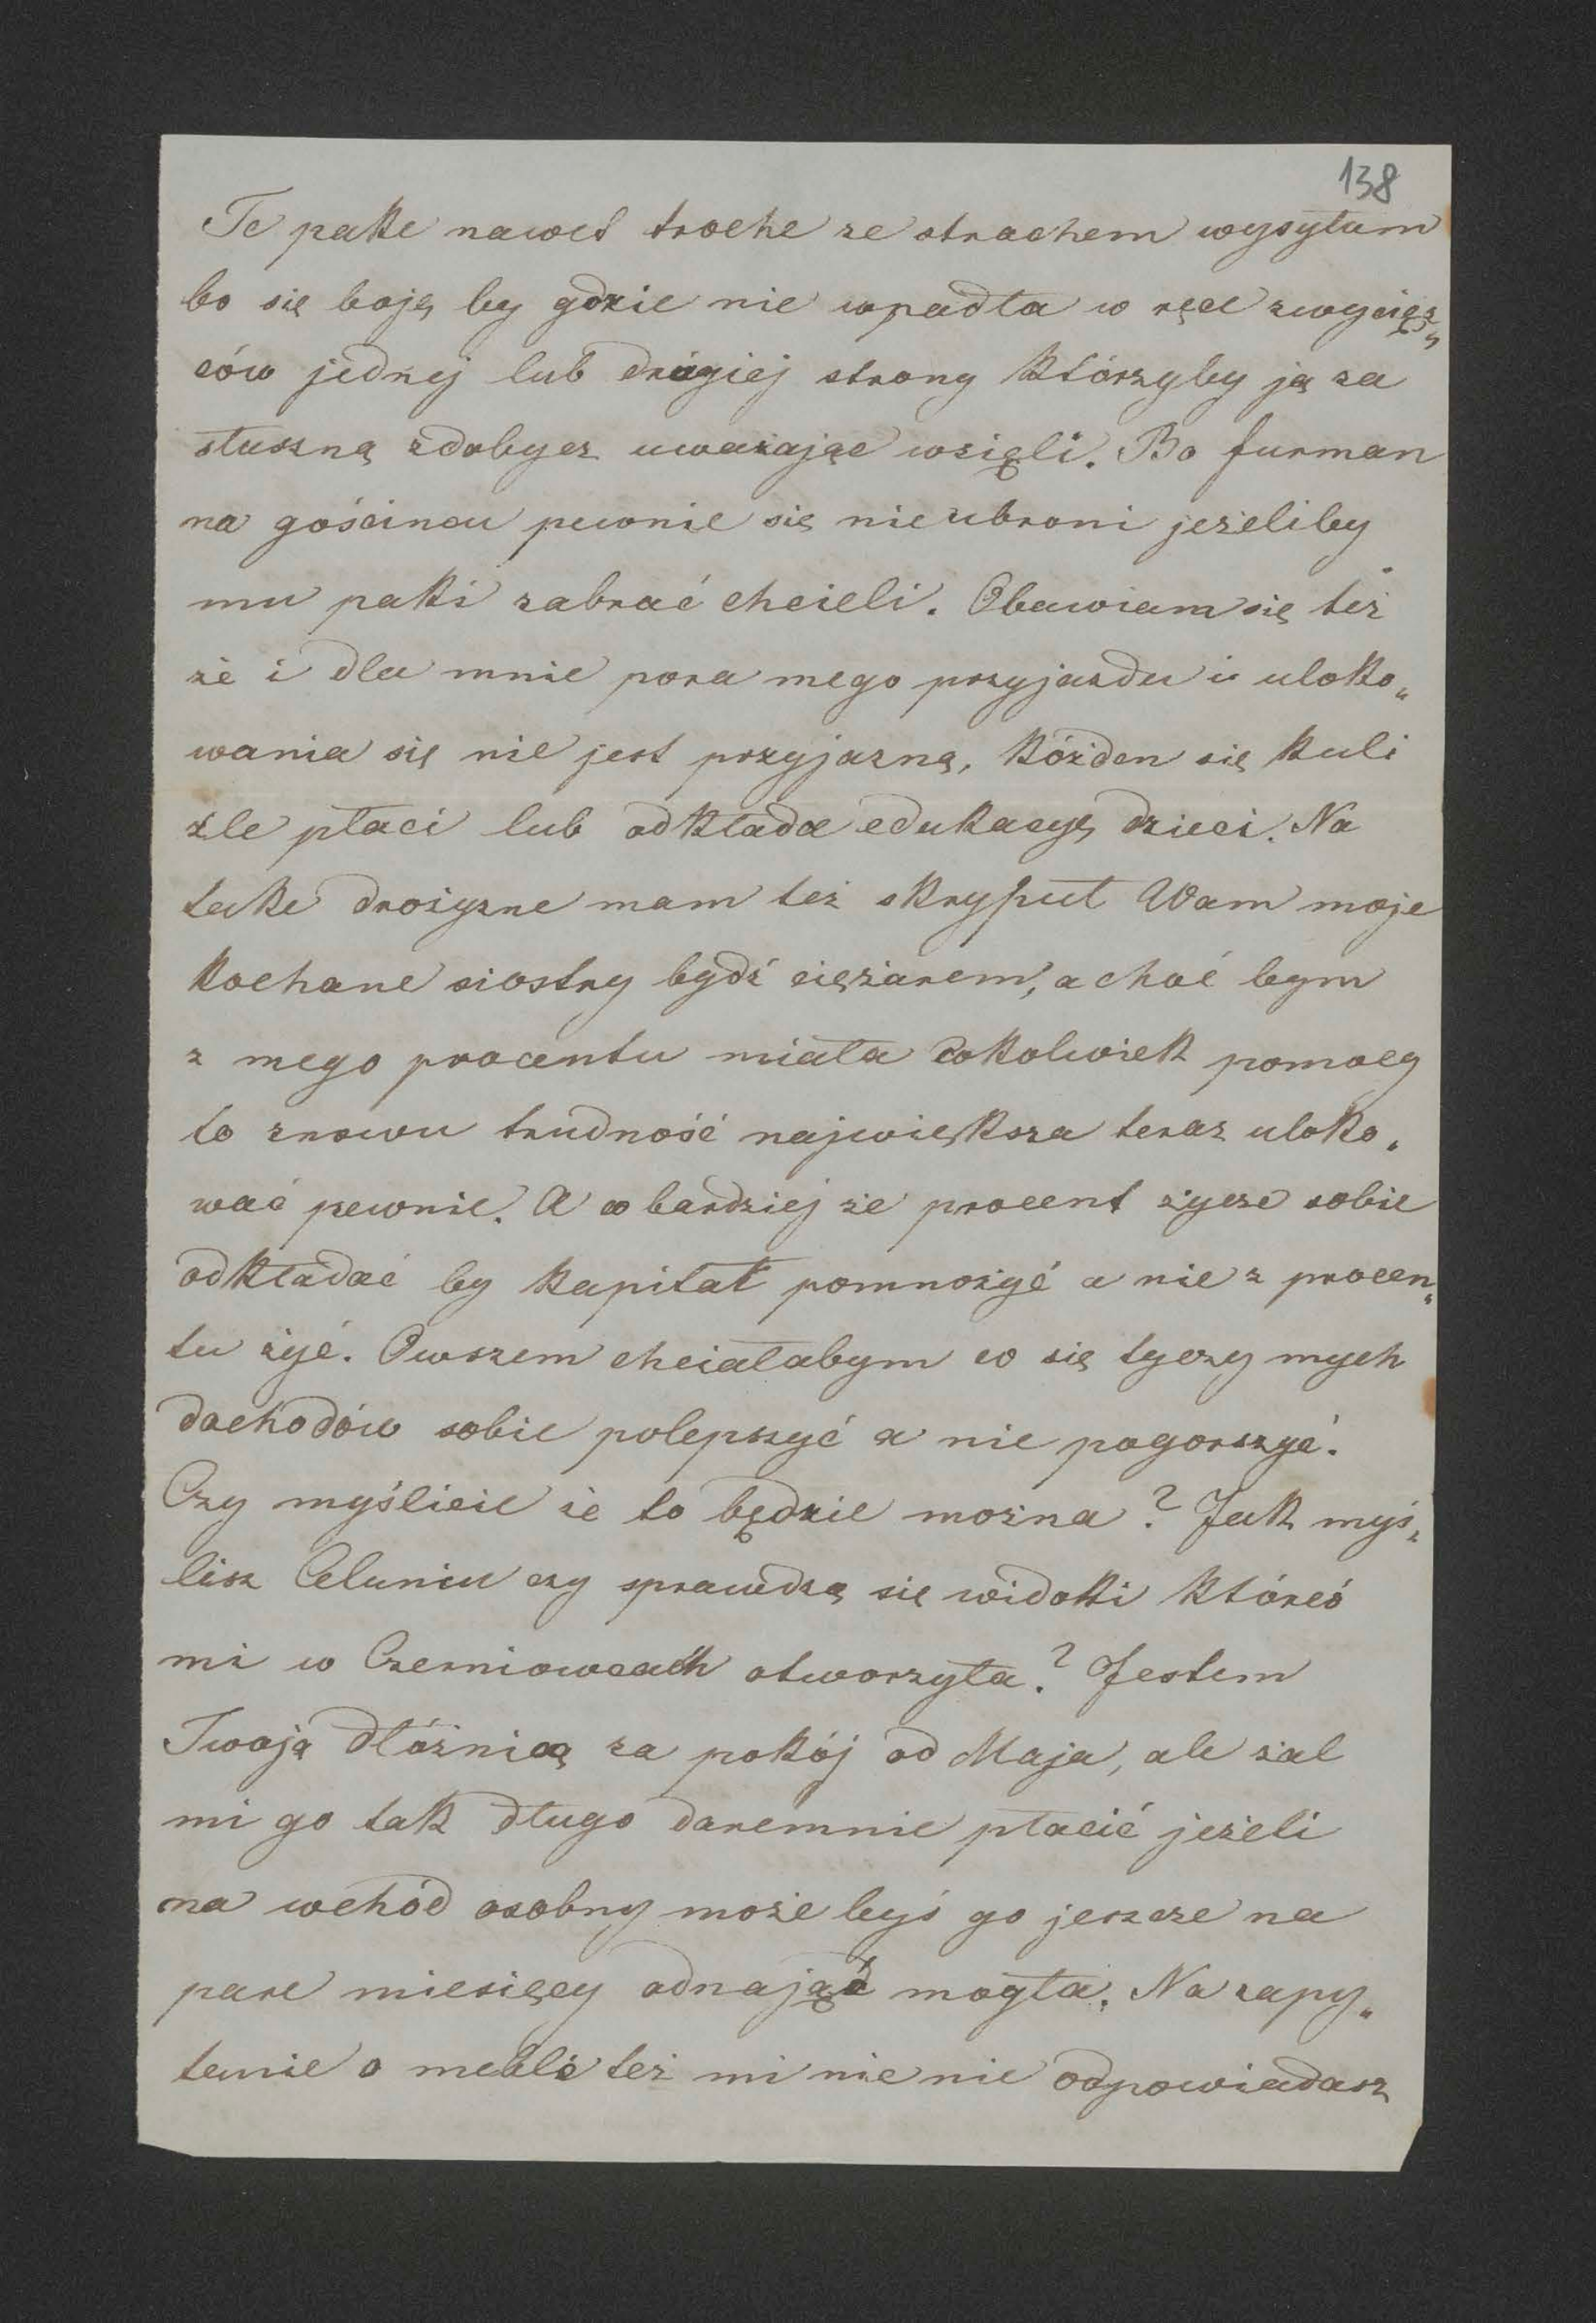 138
Te pake nawet troche ze strachem wysyłam
bo się boję by gdzie nie wpadła w ręce zwycięz„
ców jednej lub drugiej strony którzyby ją za
słuszną zdobycz uważając wzięli. Bo furman
na gościncu pewnie się nie ubroni jeżeliby
mu paki zabrać chcieli. Obawiam się też
że i dla mnie pora mego przyjazdu i uloko„
wania się nie jest przyjazną, kóżden się kuli
źle płaci lub odkłada edukacyę dzieci. Na
take drożyzne mam też skryput Wam moje
kochane siostry bydź ciężarem, a choć bym
z mego procentu miała cokolwiek pomocy
to znowu trudność największa teraz uloko„
wać pewnie. A co bardziej że procent życze sobie
odkładać by kapitał pomnożyć a nie z procen„
tu żyć. Owszem chciałabym co się tyczy mych
dochodów sobie polepszyć a nie pogorszyć.
Czy myślicie że to będzie można? Jak myś„
lisz Celuniu czy sprawdzą się widoki któreś
mi w Czerniowcach otworzyła? Jestem
Twoją dłóżnicą za pokój od Maja, ale żal
mi go tak długo daremnie płacić jeżeli
ma wchód osobny może byś go jeszcze na
pare miesięcy odnająć mogła. Na zapy„
tanie o meble też mi nic nie odpowiadasz